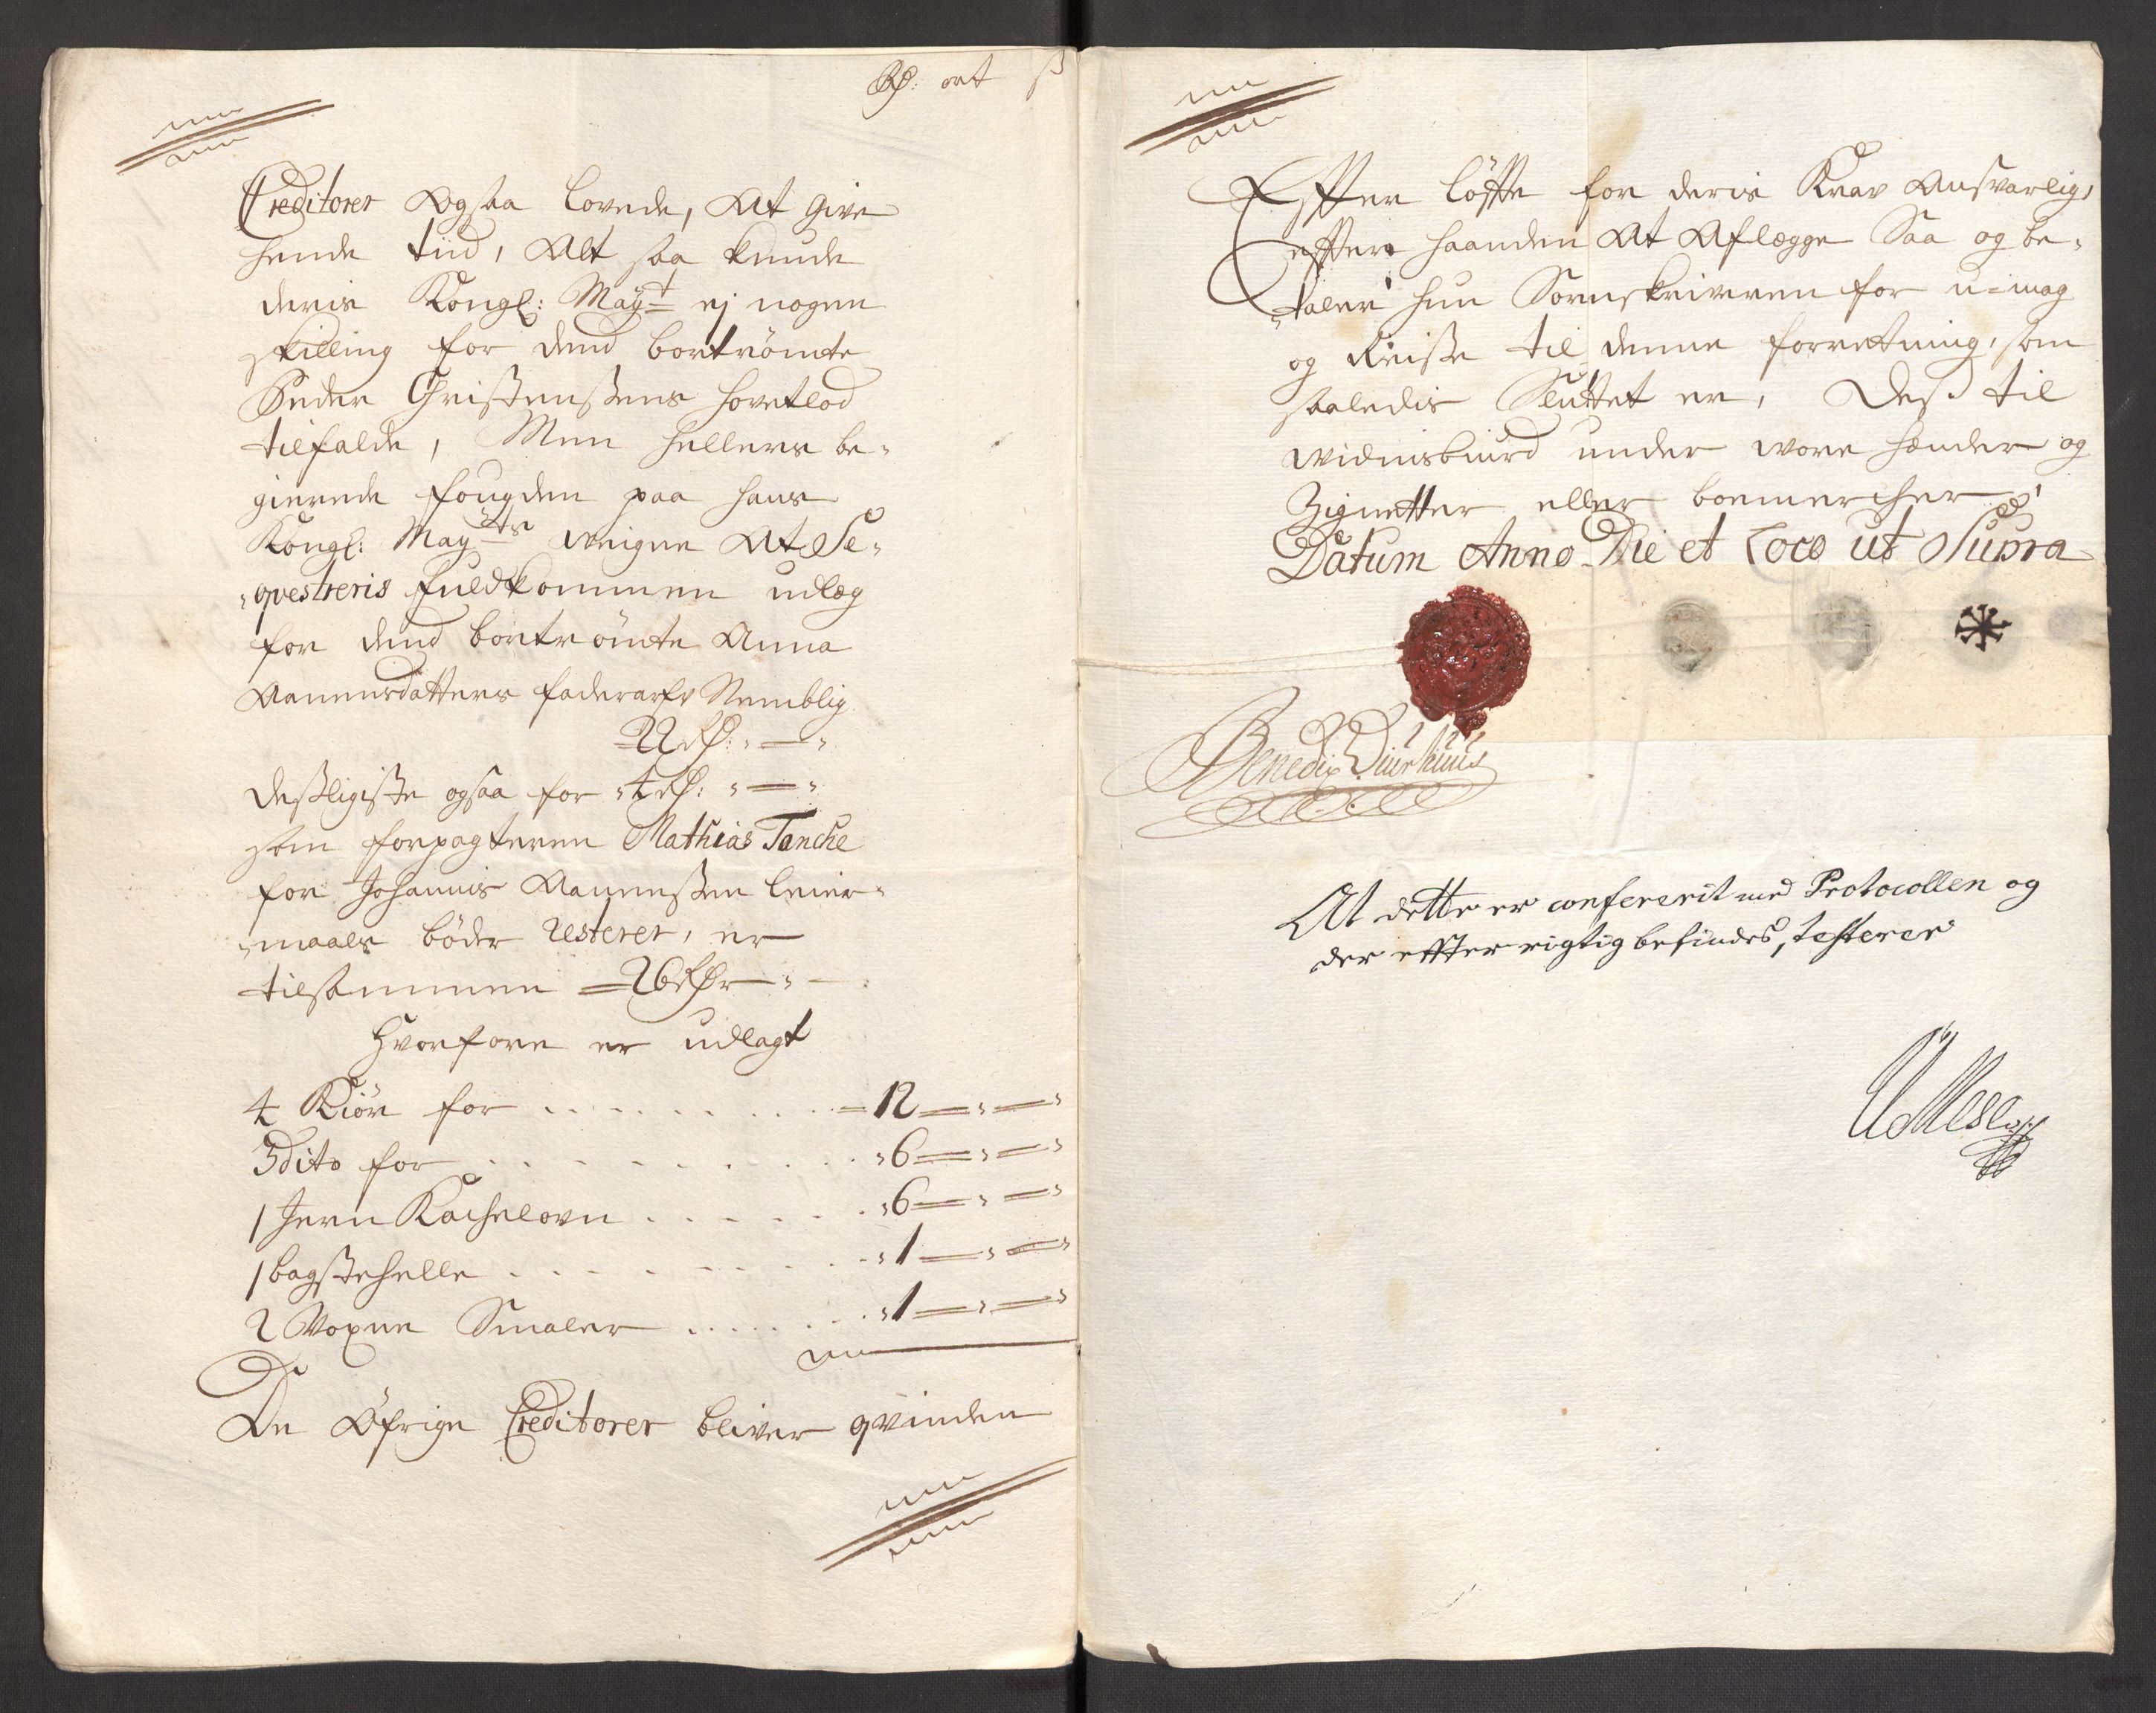 Rd: ort ß
Creditorer Ogsaa lovede, At give
hende tiid, Alt saa kunde
deris Kongl: Mayt ej nogen
skilling for dend bortrömte
Peder Christenßens hovetlod
tilfalde, Men hellers be-
gierede fougden paa hans
Kongl: Mayts veigne At Se-
qvestreris fuldkommen udlæg
for dend bortrömte Anna
Aanensdatters faderarfv Nemblig
22 Rd: - " - "
desligiste ogsaa for 4 Rd: " - "
som forpagteren Mathias Tanche
for Johannis Aanenßen leier-
maals böder resterer, er
tilsammen 26 Rdr - " -
Hvorfore er udlagt
4 Kiör for . . . . . . . . . 12 - " - "
3 dito for . . . . . . . . . 6 - " - "
1 Jern Kachelovn . . . . . . 6 - " - "
1 bagstehelle . . . . . . . . 1 - " - "
2 Voxne Smaler . . . . . . . 1 - " - "
De Öfrige Creditorer bliver qvinden
Efter löfte for deris Krav Ansvarlig,
efter haanden At Aflægge Saa og be-
taler hun Sorenskriveren for u-mag
og Reise til denne forretning, som
saaledis Sluttet er, Deß til
vidnisbiurd under vore hænder og
Zignetter eller boemercher
Datum Anno Die et Loco ut Supra
Benedix Diurhuus
At dette er confererit med Protocollen og
der effter rigtig befindes, testerer